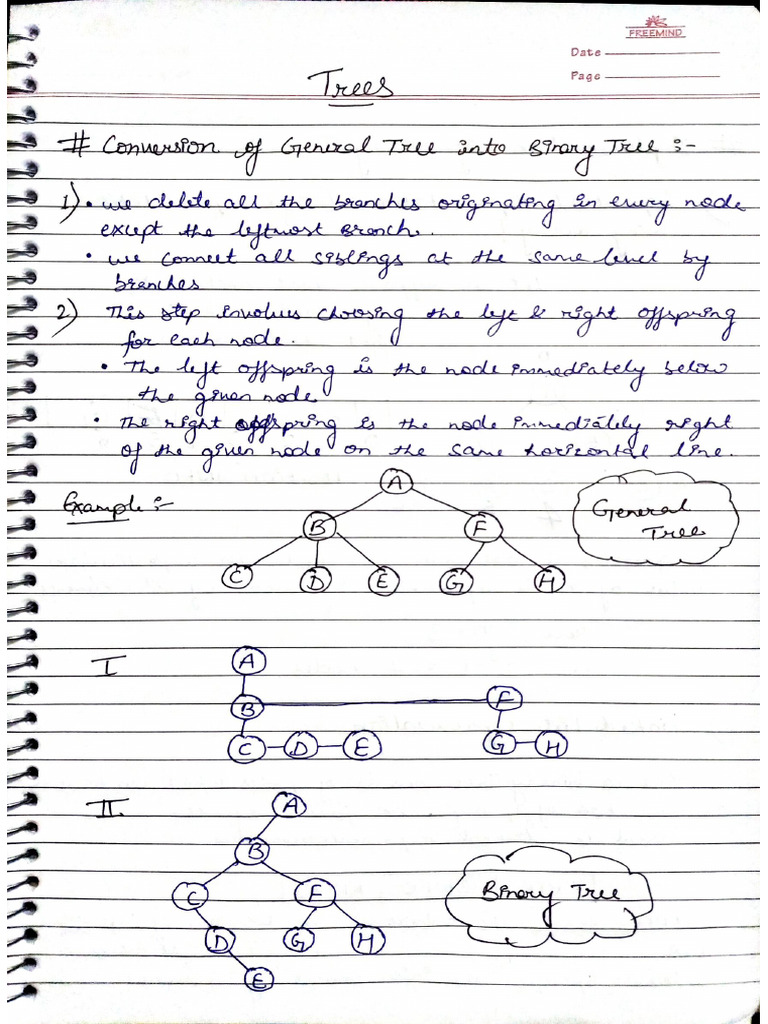 FREEMIND
Date
Page
Trees
# Conversion of General Tree into Binary Tree :-
1) • we delete all the branches originating in every node
except the leftmost Branch.
• we connect all siblings at the same level by
branches
2) This step involves choosing the left & right offspring
for each node.
• The left offspring is the node immediately below
the given node
• The right offspring is the node immediately right
of the given node on the same horizontal line.
Example :-
A
B F
C D E G H
General
Tree
I
A
B F
C D E G H
II.
A
B
C F
D G H
E
Binary Tree